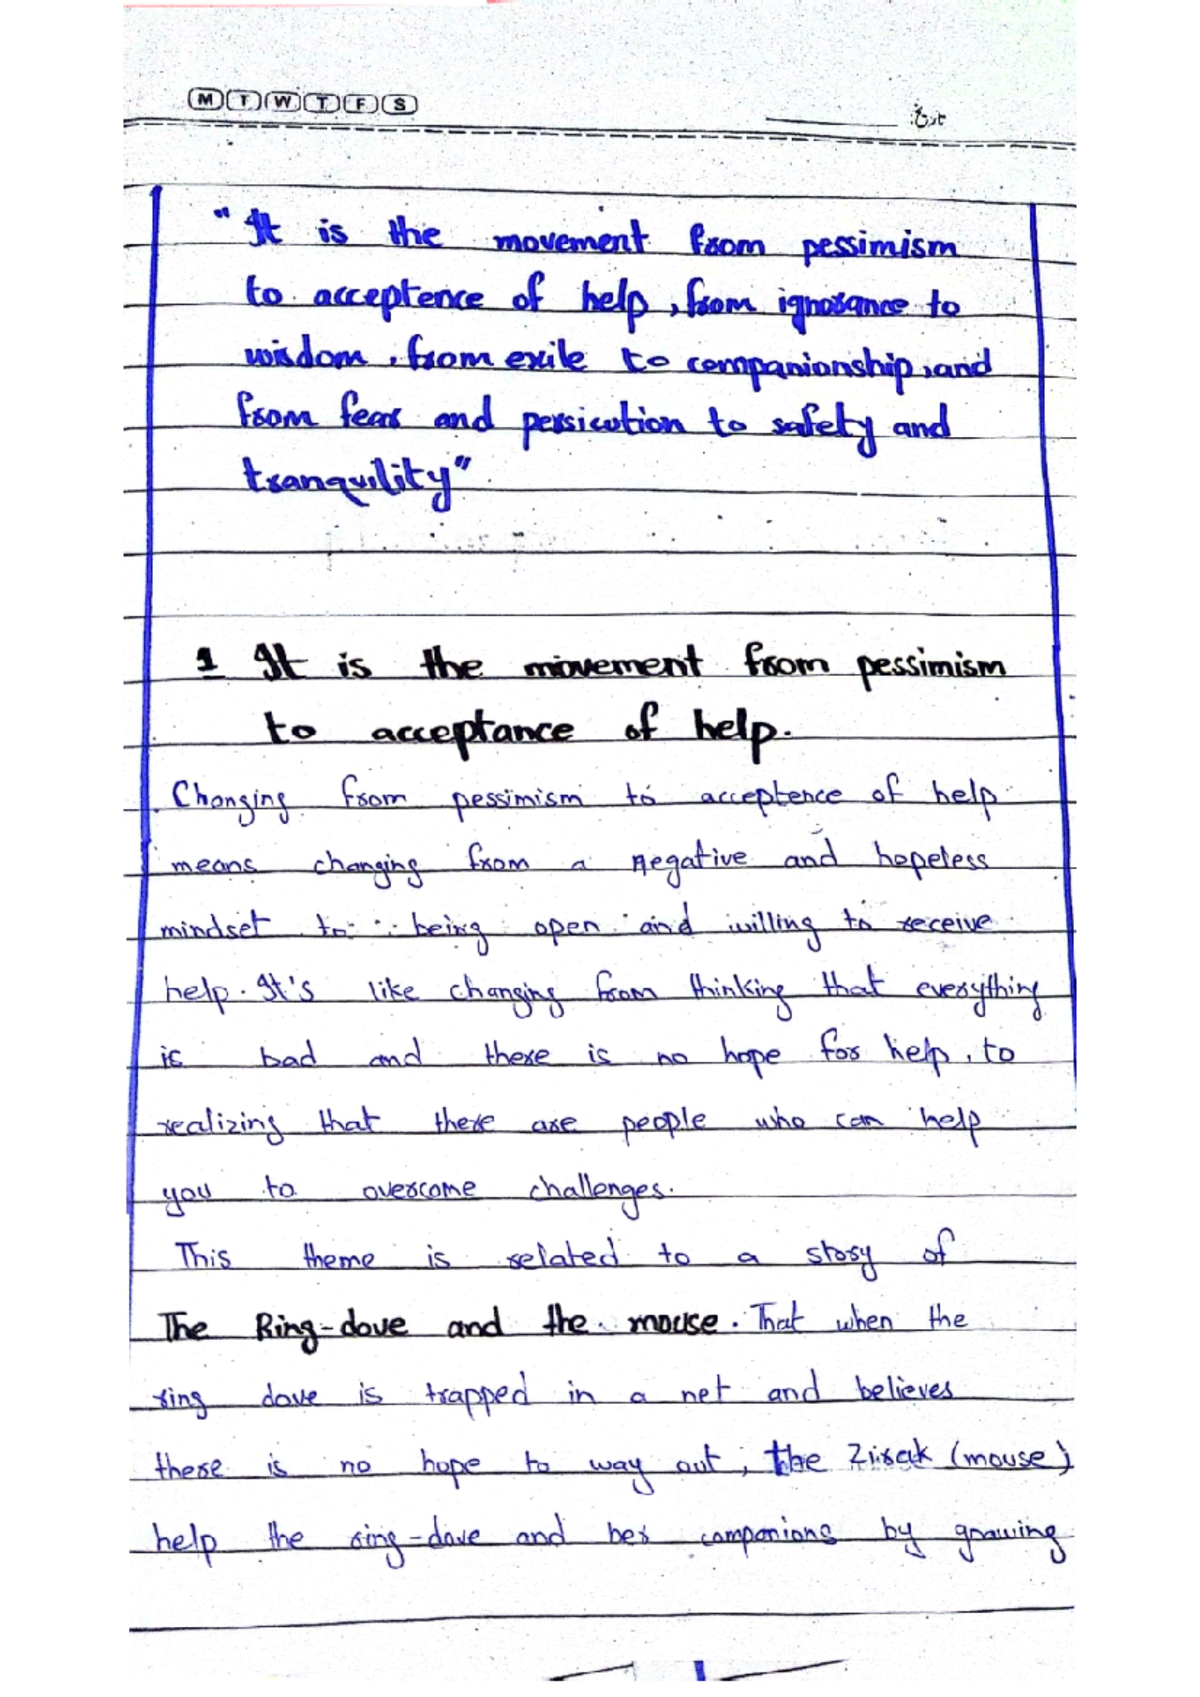 M T W T F S
تاریخ:
"It is the movement from pessimism
to acceptence of help, from ignorance to
wisdom, from exile to companionship, and
from fear and persicution to safety and
tranquility"
1 It is the movement from pessimism
to acceptance of help.
Changing from pessimism to acceptence of help
means changing from a negative and hopeless
mindset to being open and willing to receive
help. It's like changing from thinking that everything
is bad and there is no hope for help, to
realizing that there are people who can help
you to overcome challenges.
This theme is related to a story of
The Ring-dove and the mouse. That when the
ring dove is trapped in a net and believes
there is no hope to way out, the Zirak (mouse)
help the ring-dove and her companions by gnawing